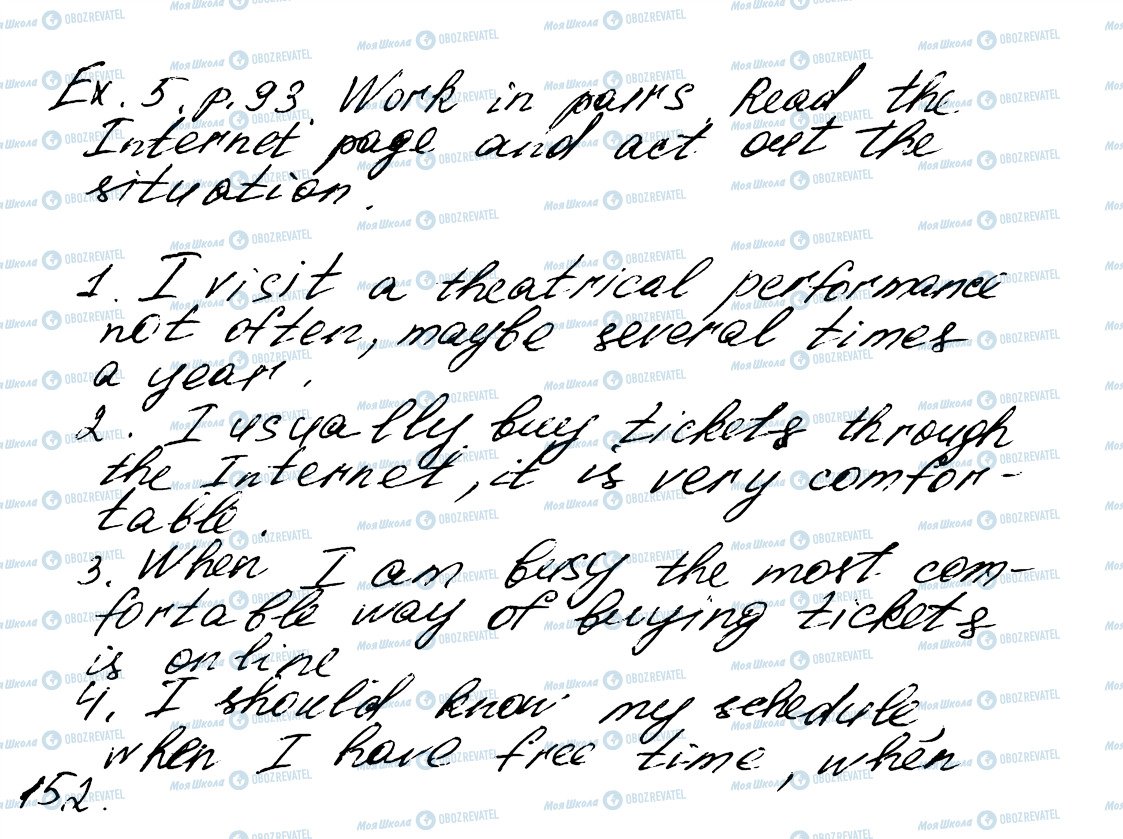 Ex. 5. p. 93. Work in pairs. Read the
Internet page and act out the
situation.
1. I visit a theatrical performance
not often, maybe several times
a year.
2. I usually buy tickets through
the Internet, it is very comfor-
table.
3. When I am busy the most com-
fortable way of buying tickets
is online
4. I should know my schedule,
when I have free time, when
152.